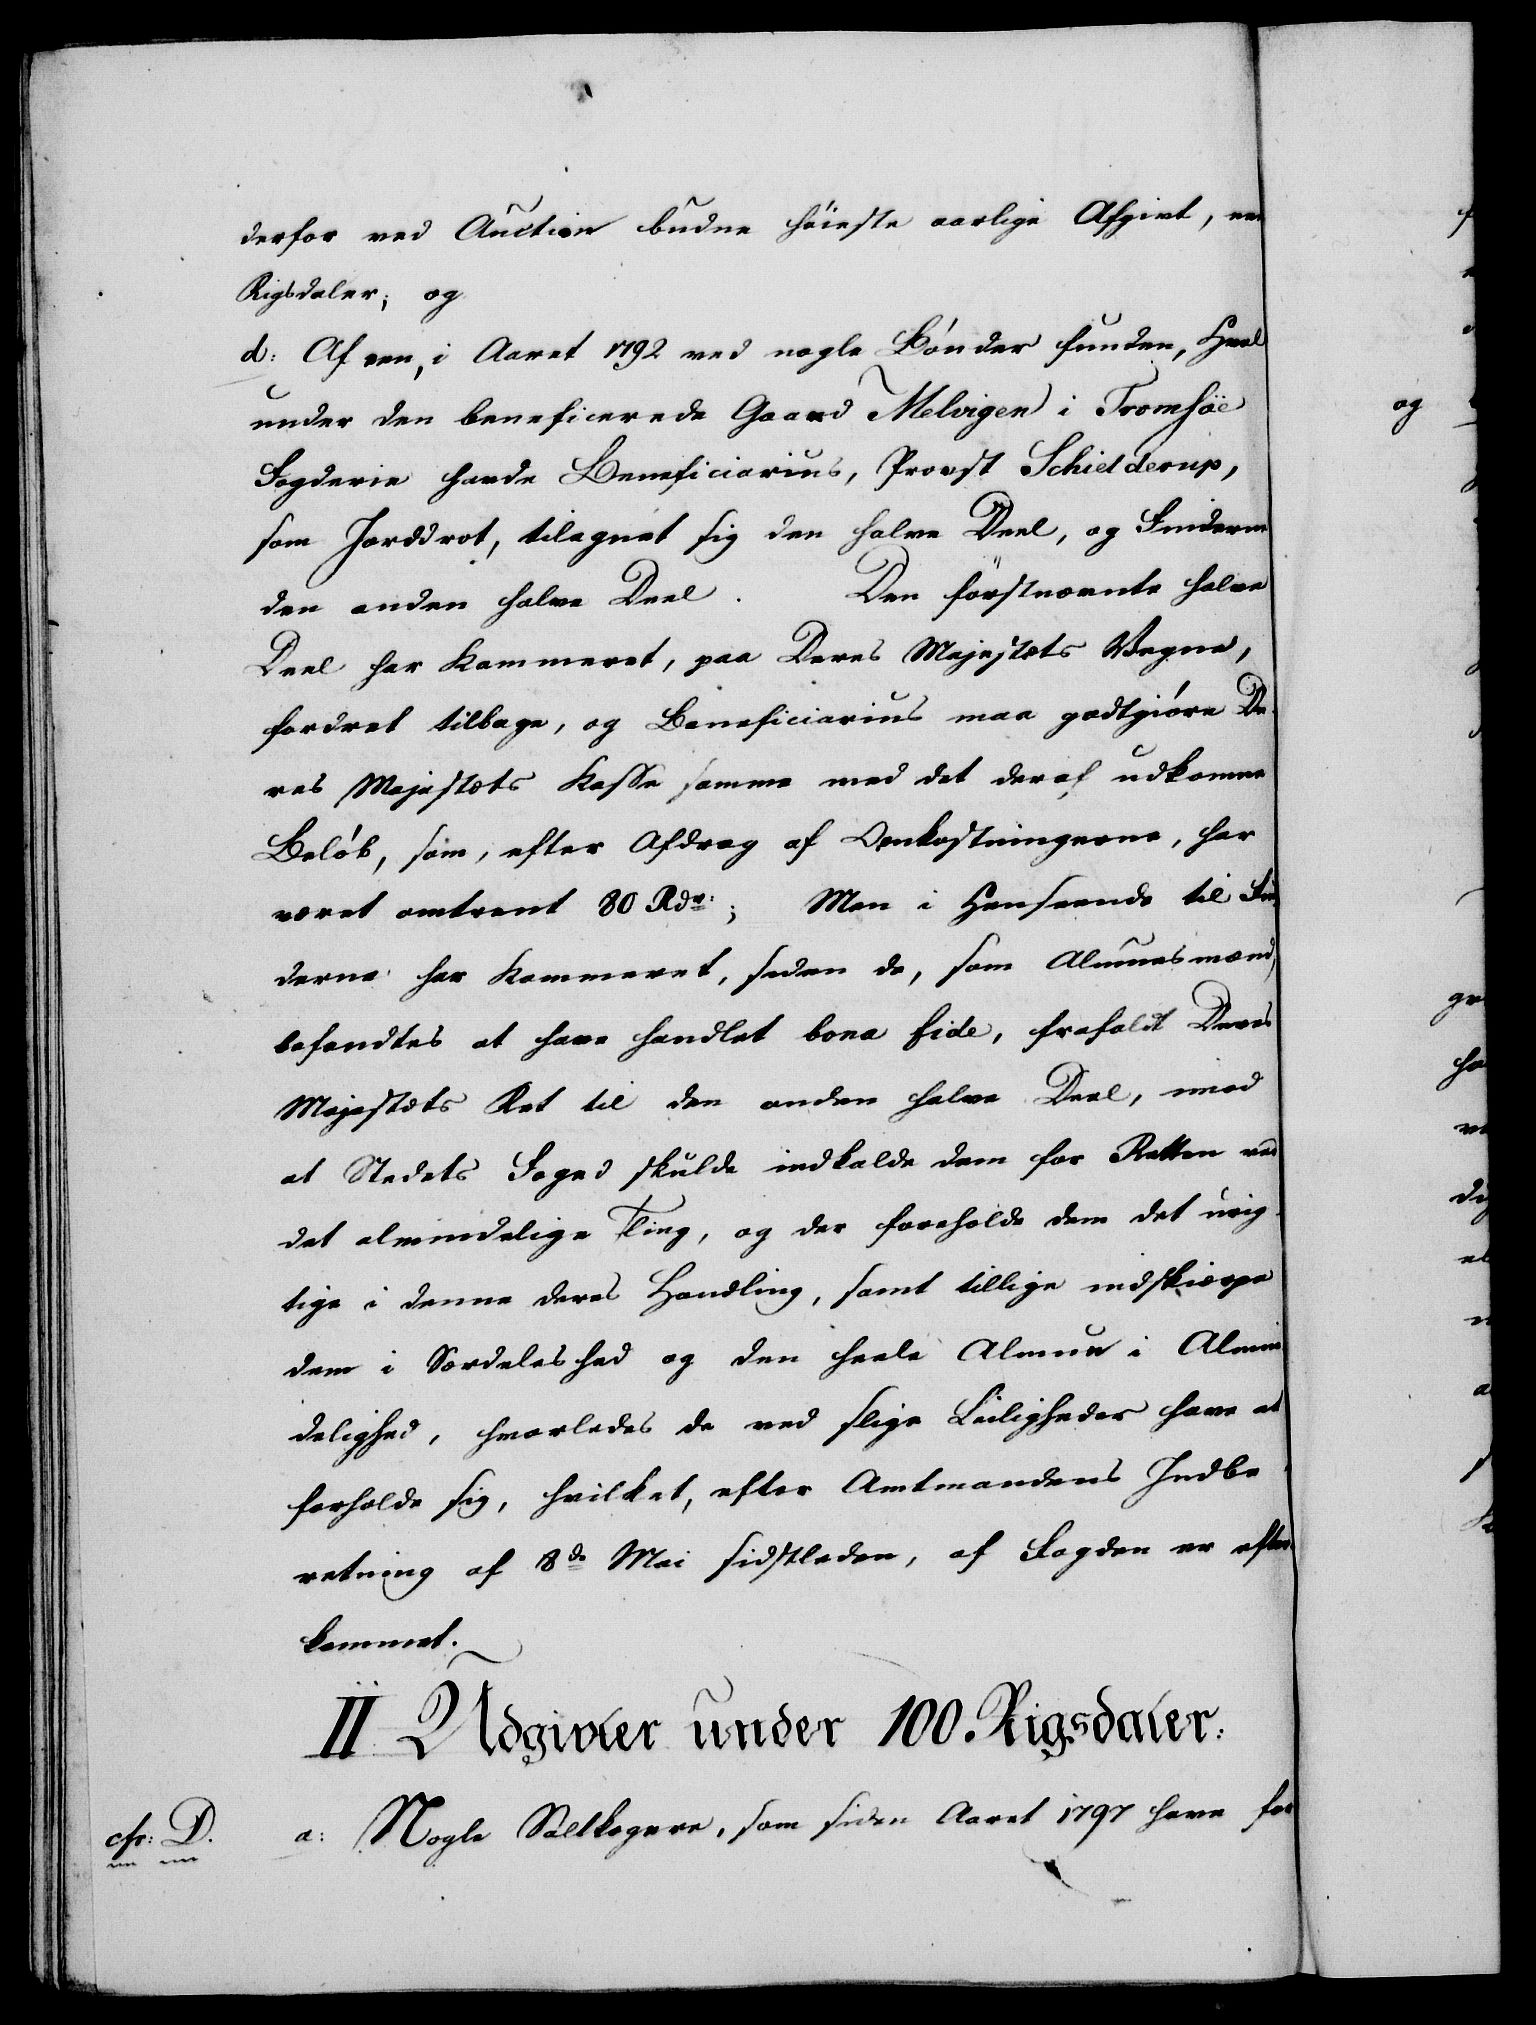 derfor ved Auction budne höieste aarlige Afgivt, een
Rigsdaler; og
d: Af een, i Aaret 1792 ved nogle Bönder funden, Hval
under den beneficerede Gaard Melvigen i Tromsöe
Fogderie havde Beneficiarius, Provst Schielderup,
som Jorddrot, tilegnet sig den halve Deel, og Finderne
den anden halve Deel. Den förstnævnte halve
Deel har Kammeret, paa Deres Majestæts Vegne,
fordret tilbage, og Beneficiarius maa godtgiöre De-
res Majestæts Kasse samme med det deraf udkomne
Belöb, som, efter Afdrag af Omkostningerne, har
været omtrent 80 Rdr:; Men i Henseende til Fin-
derne har Kammeret, siden de, som Almuesmænd,
befandtes at have handlet bona fide, frafaldt Deres
Majestæts Ret til den anden halve Deel, imod
at Stedets Foged skulde indkalde dem for Retten ved
det almindelige Ting, og der foreholde dem det urig-
tige i denne deres Handling, samt tillige indskiærpe
dem i Særdeleshed og den heele Almue i Almin-
delighed, hvorledes de ved slige Leiligheder have at
forholde sig, hvilket, efter Amtmandens Indbe-
retning af 8de Mai sidstleden, af Fogden er efter-
kommet.
II Udgivter under 100. Rigsdaler:
cfr: D. a: Nogle Saltkogere, som siden Aaret 1797 have for
og